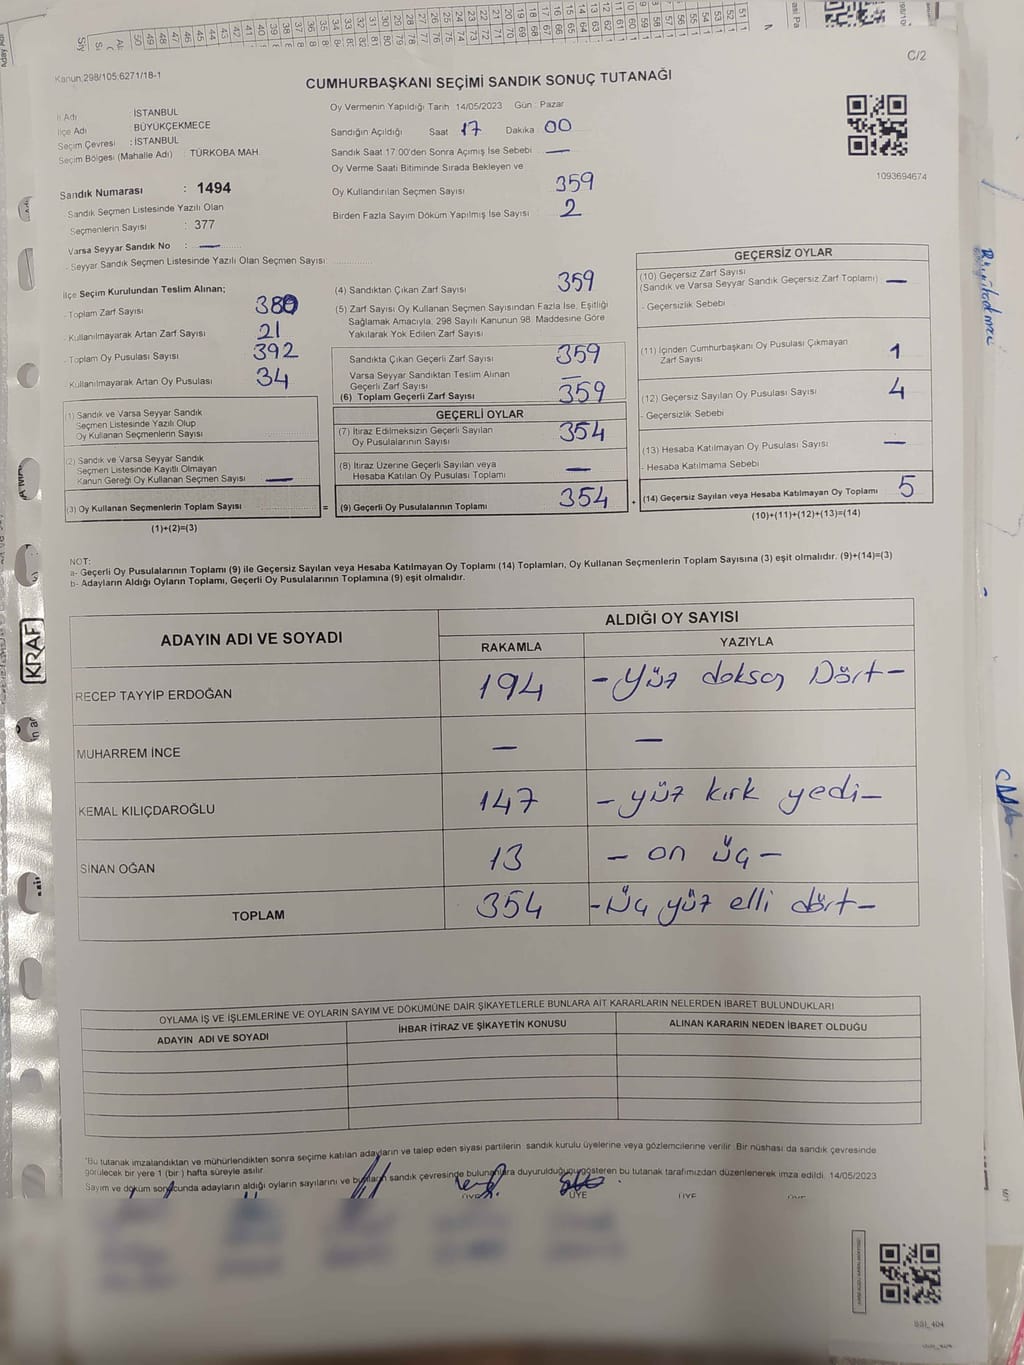 Kanun:298/105;6271/18-1
C/2
CUMHURBAŞKANI SEÇİMİ SANDIK SONUÇ TUTANAĞI
İl Adı İSTANBUL
İlçe Adı BÜYÜKÇEKMECE
Seçim Çevresi : İSTANBUL
Seçim Bölgesi (Mahalle Adı) : TÜRKOBA MAH.
Oy Vermenin Yapıldığı Tarih 14/05/2023 Gün : Pazar
Sandığın Açıldığı Saat 17 Dakika 00
Sandık Saat 17:00'den Sonra Açımış İse Sebebi —
Oy Verme Saati Bitiminde Sırada Bekleyen ve
Oy Kullandırılan Seçmen Sayısı 359
Birden Fazla Sayım Döküm Yapılmış İse Sayısı 2
1093694674
Sandık Numarası : 1494
Sandık Seçmen Listesinde Yazılı Olan
Seçmenlerin Sayısı : 377
Varsa Seyyar Sandık No : —
- Seyyar Sandık Seçmen Listesinde Yazılı Olan Seçmen Sayısı:
İlçe Seçim Kurulundan Teslim Alınan;
- Toplam Zarf Sayısı 380
- Kullanılmayarak Artan Zarf Sayısı 21
- Toplam Oy Pusulası Sayısı 392
- Kullanılmayarak Artan Oy Pusulası 34
(1) Sandık ve Varsa Seyyar Sandık
Seçmen Listesinde Yazılı Olup
Oy Kullanan Seçmenlerin Sayısı
(2) Sandık ve Varsa Seyyar Sandık
Seçmen Listesinde Kayıtlı Olmayan
Kanun Gereği Oy Kullanan Seçmen Sayısı —
(3) Oy Kullanan Seçmenlerin Toplam Sayısı
(1)+(2)=(3)
(4) Sandıktan Çıkan Zarf Sayısı 359
(5) Zarf Sayısı Oy Kullanan Seçmen Sayısından Fazla İse, Eşitliği
Sağlamak Amacıyla, 298 Sayılı Kanunun 98. Maddesine Göre
Yakılarak Yok Edilen Zarf Sayısı
Sandıkta Çıkan Geçerli Zarf Sayısı 359
Varsa Seyyar Sandıktan Teslim Alınan
Geçerli Zarf Sayısı —
(6) Toplam Geçerli Zarf Sayısı 359
GEÇERLİ OYLAR
(7) İtiraz Edilmeksizin Geçerli Sayılan
Oy Pusulalarının Sayısı 354
(8) İtiraz Üzerine Geçerli Sayılan veya
Hesaba Katılan Oy Pusulası Toplamı —
= (9) Geçerli Oy Pusulalarının Toplamı 354
GEÇERSİZ OYLAR
(10) Geçersiz Zarf Sayısı
(Sandık ve Varsa Seyyar Sandık Geçersiz Zarf Toplamı) —
- Geçersizlik Sebebi
(11) İçinden Cumhurbaşkanı Oy Pusulası Çıkmayan
Zarf Sayısı 1
(12) Geçersiz Sayılan Oy Pusulası Sayısı 4
- Geçersizlik Sebebi
(13) Hesaba Katılmayan Oy Pusulası Sayısı —
- Hesaba Katılmama Sebebi
+ (14) Geçersiz Sayılan veya Hesaba Katılmayan Oy Toplamı 5
(10)+(11)+(12)+(13)=(14)
NOT:
a- Geçerli Oy Pusulalarının Toplamı (9) ile Geçersiz Sayılan veya Hesaba Katılmayan Oy Toplamı (14) Toplamları, Oy Kullanan Seçmenlerin Toplam Sayısına (3) eşit olmalıdır. (9)+(14)=(3)
b- Adayların Aldığı Oyların Toplamı, Geçerli Oy Pusulalarının Toplamına (9) eşit olmalıdır.
ADAYIN ADI VE SOYADI ALDIĞI OY SAYISI
RAKAMLA YAZIYLA
RECEP TAYYİP ERDOĞAN 194 - Yüz doksan Dört -
MUHARREM İNCE — —
KEMAL KILIÇDAROĞLU 147 - yüz kırk yedi -
SİNAN OĞAN 13 - on üç -
TOPLAM 354 - Üç yüz elli dört -
OYLAMA İŞ VE İŞLEMLERİNE VE OYLARIN SAYIM VE DÖKÜMÜNE DAİR ŞİKAYETLERLE BUNLARA AİT KARARLARIN NELERDEN İBARET BULUNDUKLARI
ADAYIN ADI VE SOYADI İHBAR İTİRAZ VE ŞİKAYETİN KONUSU ALINAN KARARIN NEDEN İBARET OLDUĞU
*Bu tutanak imzalandıktan ve mühürlendikten sonra seçime katılan adayların ve talep eden siyasi partilerin sandık kurulu üyelerine veya gözlemcilerine verilir. Bir nüshası da sandık çevresinde
görülecek bir yere 1 (bir) hafta süreyle asılır.
Sayım ve döküm sonucunda adayların aldığı oyların sayılarını ve sandık çevresinde duyurulduğunu gösteren bu tutanak tarafımızdan düzenlenerek imza edildi. 14/05/2023
ÜYE ÜYE ÜYE ÜYE
KRAF